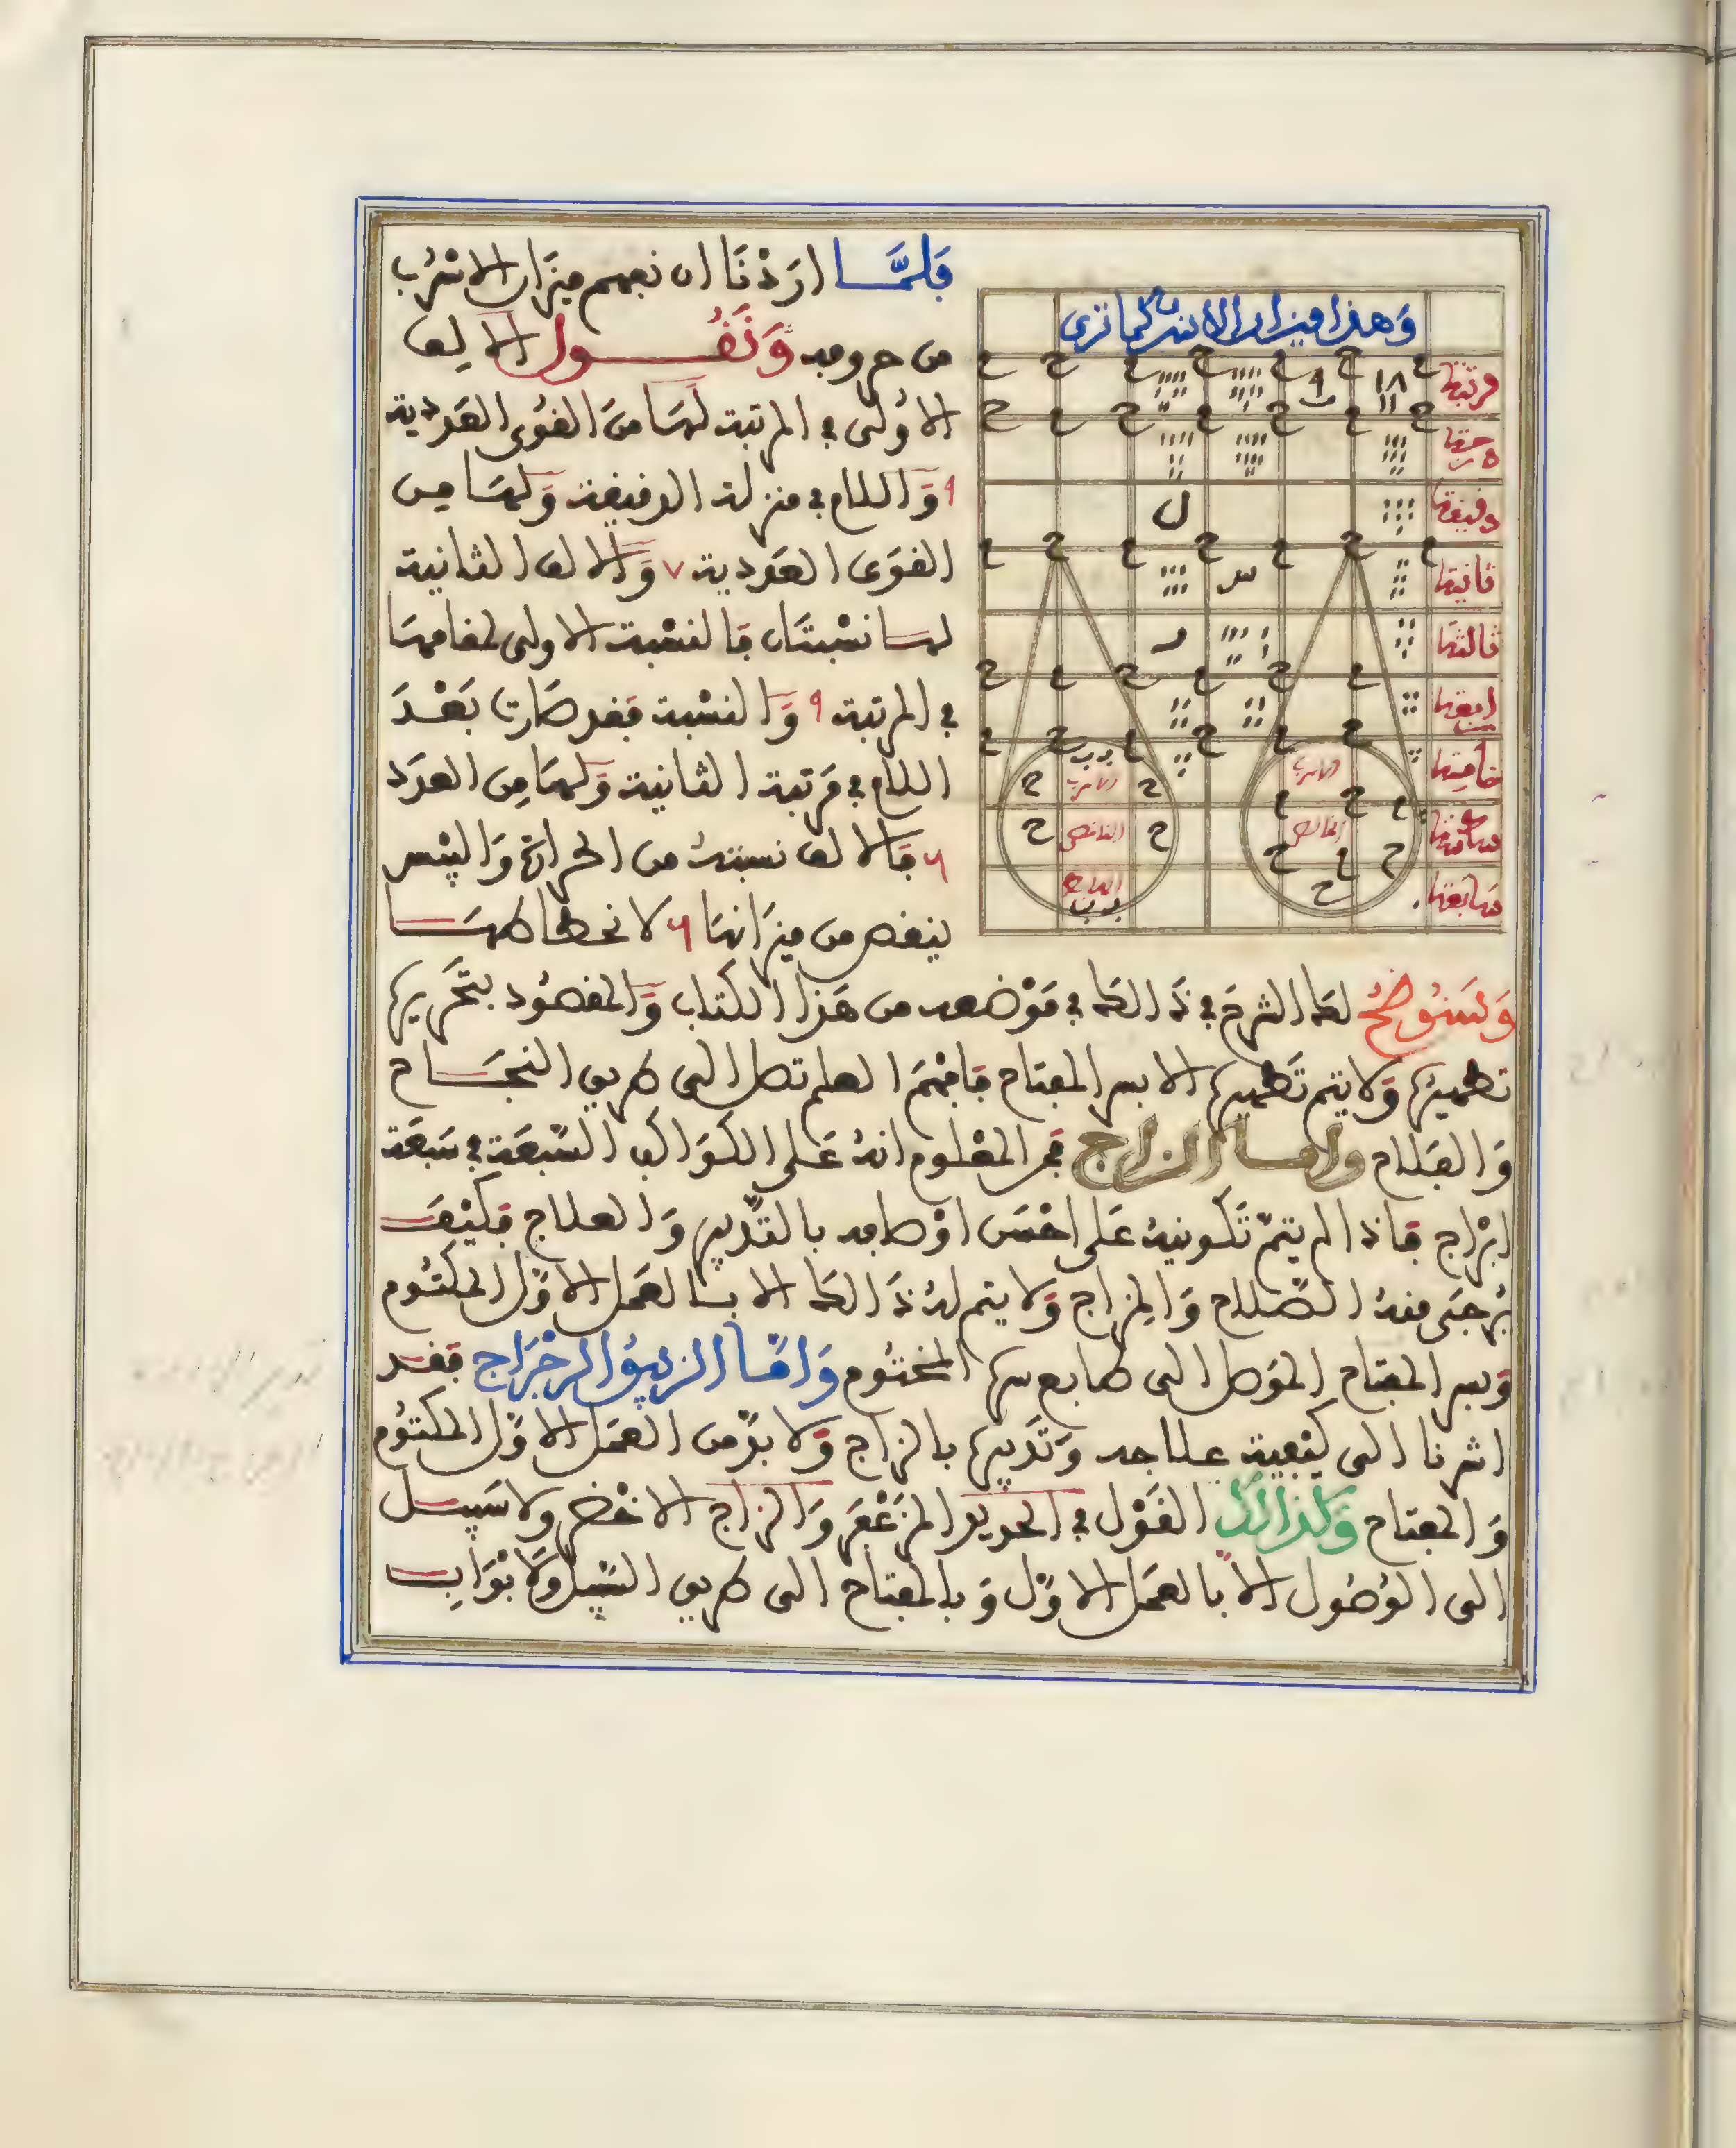 وَهذا ميزان الاسرب كما ترى
مرتبتها
درجتها
دقيقتها
ثانيتها
ثالثتها
رابعتها
خامستها
سادستها
سابعتها
الاسرب
الخالص
الاسرب
الناقص
فَلَمَّا ارَدْنَا ان نفهم ميزان الاسْرُب
من حروفه وَنَقُول الالف
الاُولى في المرتبة لهَا منَ القُوى العَددية
٩ وَاللام في منزلة الدقيقة وَلهَا مِن
القوَى العَددية ٧ وَالالف الثانية
لهـا نسْبتَان فالنسْبة الاولى لمقامهَا
في المرتبة ٩ وَالنسْبة فقد صَارت بَعْدَ
اللام في مَرتبة الثانية وَلهَا مِن العدَد
٦ فالالف نسبتهُ من الحرارة وَاليُبْس
ينقص من ميزانهَا ٦ لانحطاطهَـا
وَسَنُوضحُ لك الشرحَ في ذَالك في مَوْضعه من هَذا الكتَاب وَالمقصُود بتَحْريرها
تطهيرُها وَلا يتم تَطهيرها الا بسر المفتاح فافْهَمَ العلم تصل الى طريق النجَـاح
وَالفَلاح وامـا الزاج فمن المعْلوم انهُ عَـلى الكوَاكب السّبعَة في سَبعَة
ابْرَاج فاذا لم يتمّ تَكوينهُ عَلى احْسَن اوْصافه بالتّدْبير وَالعلاج فكيْفَ
يُرجَى منهُ الصّلاح وَالمِزاج وَلا يتم لهُ ذَالك الا بـالعَمل الاوّل المكتُوم
وَسر المفتاح الموَصل الى طابع سرها المختُوم وَامّا الزيبق الرجْرَاج فقد
اشرنا الى كيْفية علاجه وَتَدبيرها بالزاج وَلا بدّ من العمَل الاوّل المكتُوم
وَالمفتاح وَكذالك القَوْل في الحديد المزَعْفَر وَالزاج الاخْضر ولا سَبيـل
الى الوُصُول الا بالعَمَل الاوّل وَبالمفتاح الى طريق السّبيل وَالابْوَاب